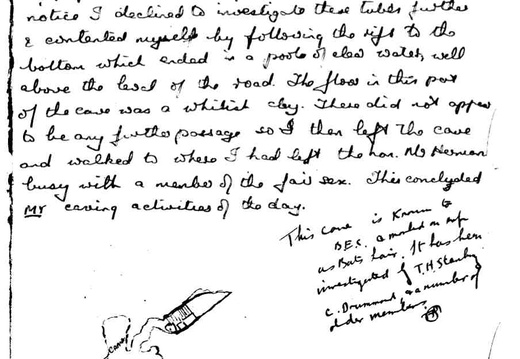 notice I declined to investigate these tubes further
& contented myself by following the rift to the
bottom which ended in a pool of clear water, well
above the level of the road. The floor in this part
of the cave was a whitish clay. There did not appear
to be any further passage so I then left the cave
and walked to where I had left the hon. Mr Herman
busy with a member of the fair sex. This concluded
my caving activities of the day.
This cave is known to
B.E.C. & marked on map
as Bats Lair. It has been
investigated by T.H. Stanbury
C. Drummond & a number of
older members.